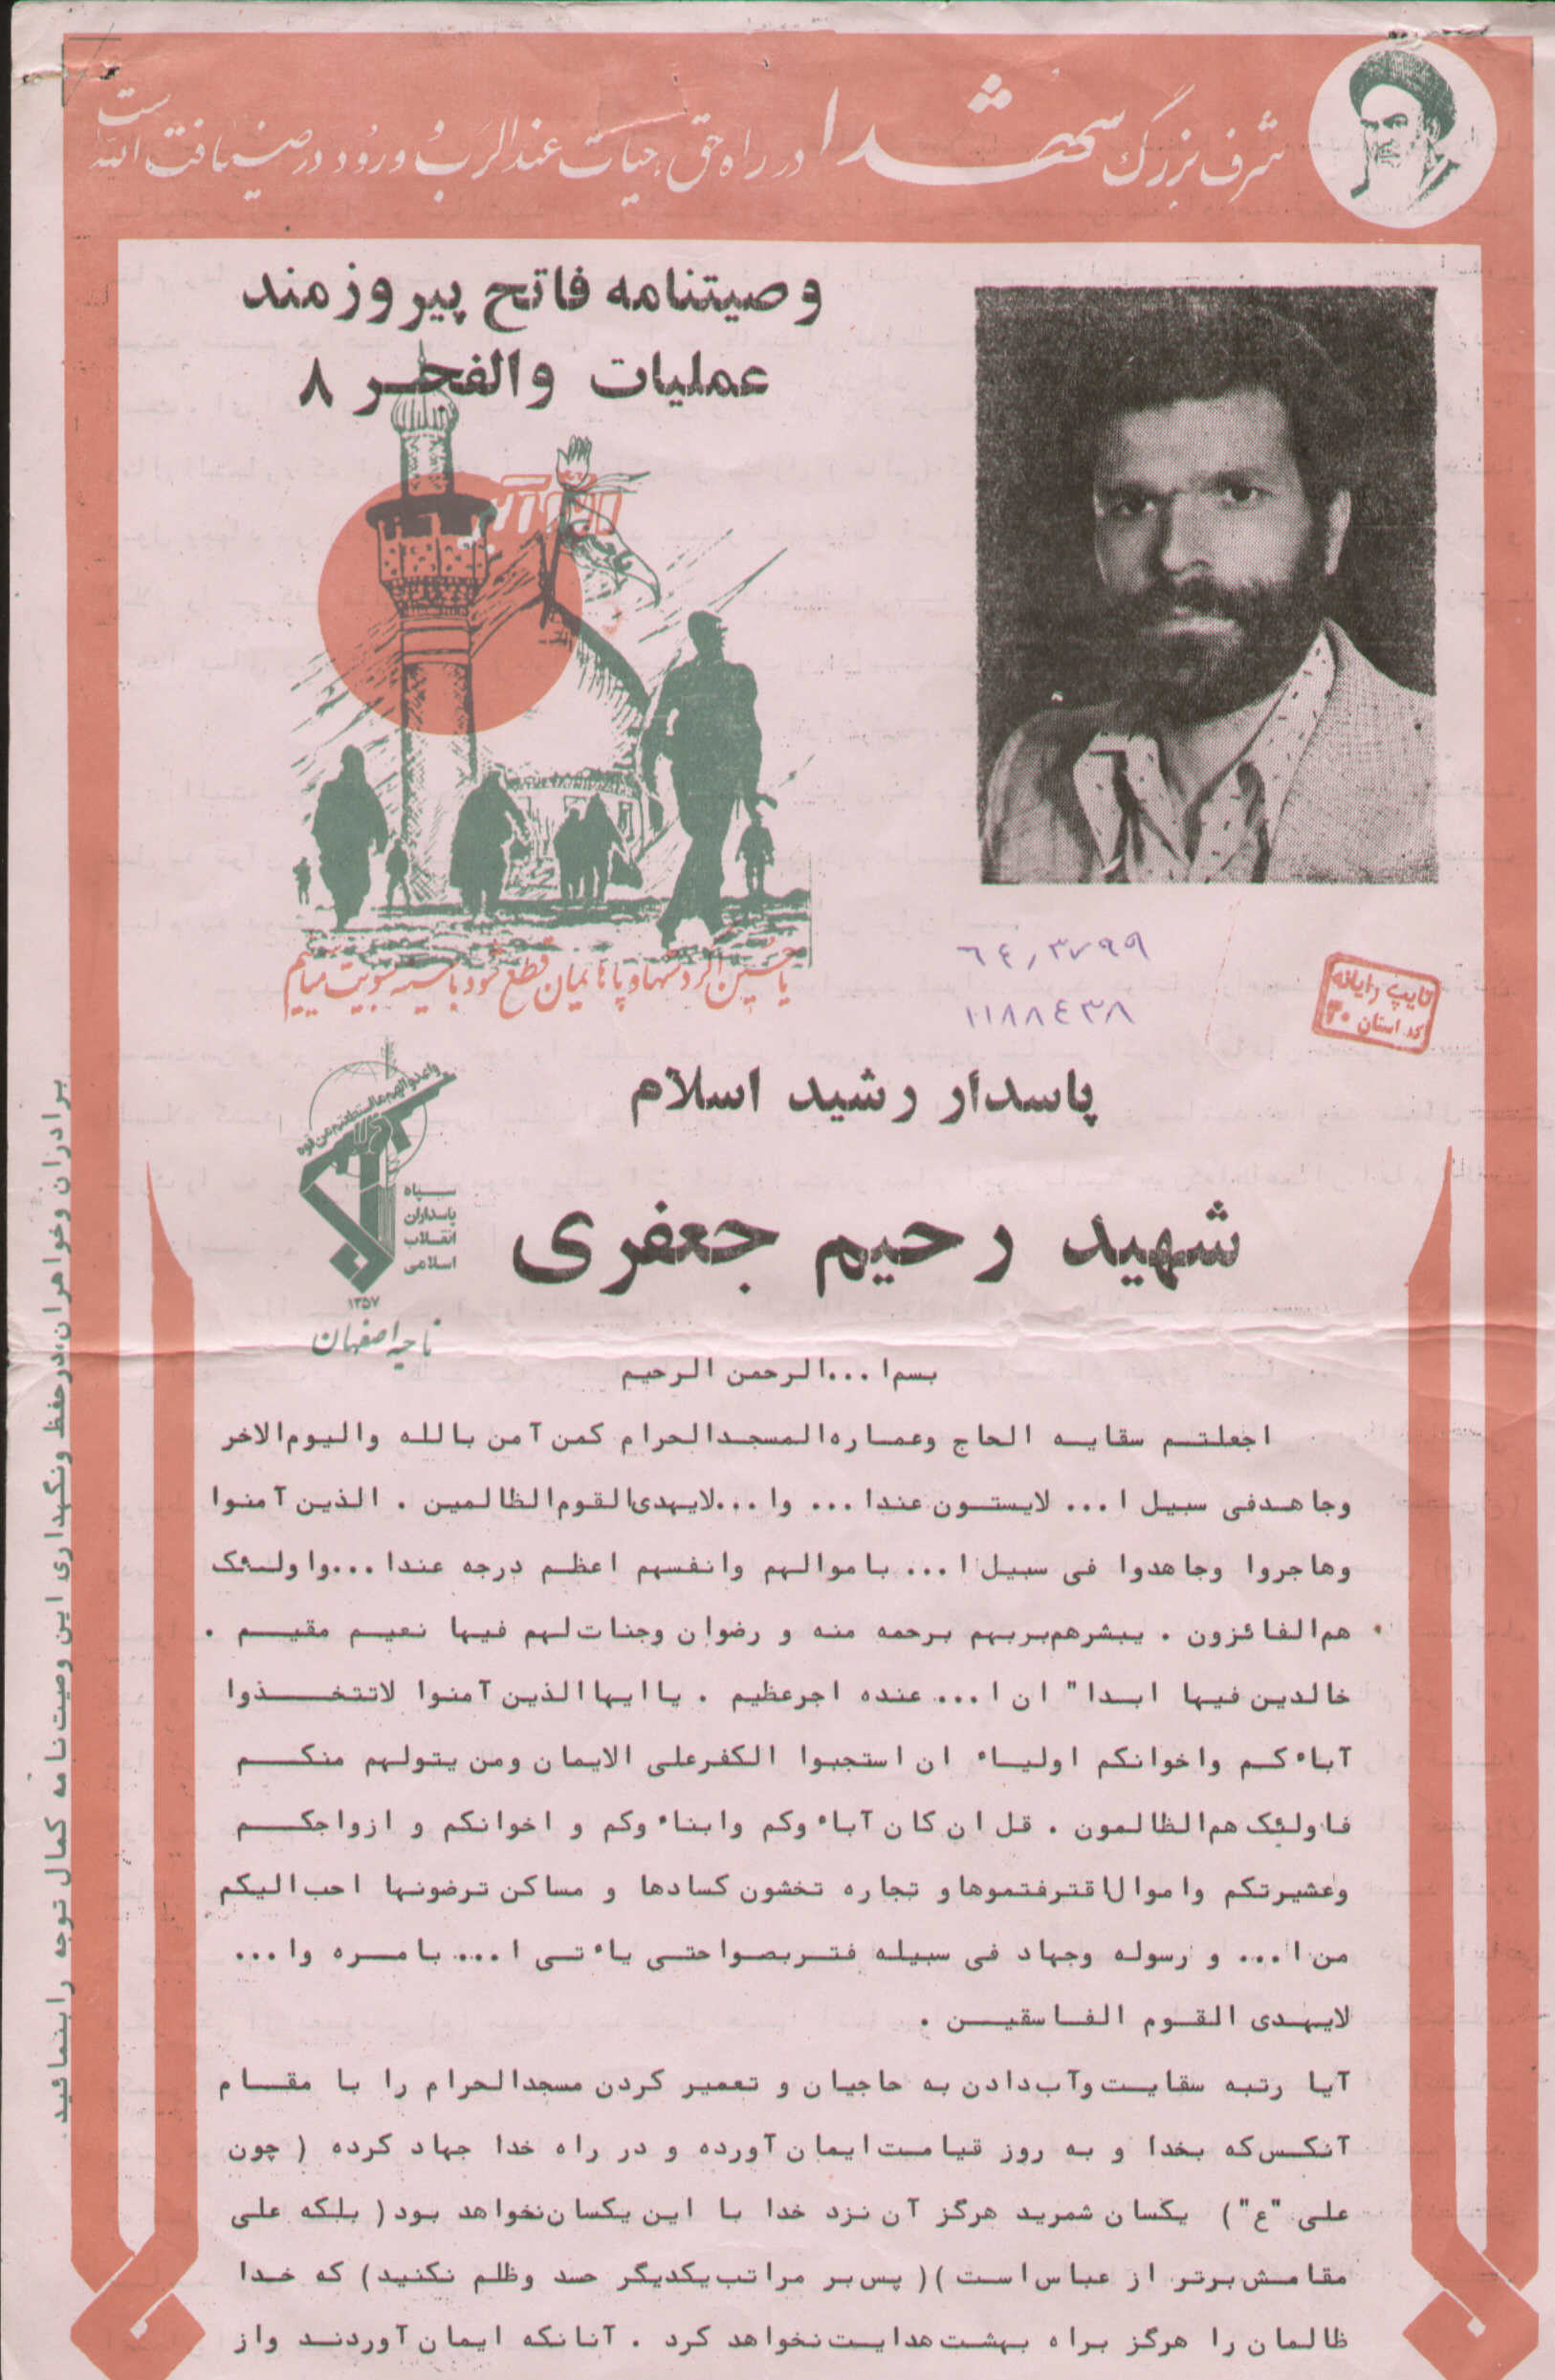 شرف بزرگ شهدا در راه حق، حیات عندالرب و ورود در ضیافت الله است
وصیتنامه فاتح پیروزمند
عملیات والفجر ۸
یا حسین اگر دستها و پاهایمان قطع شود با سینه بسویت میآییم
٦٤,٣٧٩٩
١١٨٨٤٣٨
تایپ رایانه
کد استان ۳۰
پاسدار رشید اسلام
شهید رحیم جعفری
واعدوا لهم ما استطعتم من قوة
سپاه
پاسداران
انقلاب
اسلامی
۱۳۵۷
ناحیه اصفهان
بسم ا...الرحمن الرحیم
اجعلتم سقایه الحاج وعماره المسجدالحرام کمن آمن بالله والیوم الاخر
وجاهدفی سبیل ا... لایستون عندا... وا...لایهدی القوم الظالمین . الذین آمنوا
وهاجروا وجاهدوا فی سبیل ا... باموالهم وانفسهم اعظم درجه عندا...واولئک
هم الفائزون . یبشرهم بربهم برحمه منه و رضوان وجنات لهم فیها نعیم مقیم .
خالدین فیها ابدا" ان ا... عنده اجرعظیم . یاایها الذین آمنوا لاتتخذوا
آباءکم واخوانکم اولیاء ان استجبوا الکفرعلی الایمان ومن یتولهم منکم
فاولئک هم الظالمون . قل ان کان آباءوکم وابناءوکم و اخوانکم و ازواجکم
وعشیرتکم واموال اقترفتموها و تجاره تخشون کسادها و مساکن ترضونها احب الیکم
من ا... و رسوله وجهاد فی سبیله فتربصوا حتی یاءتی ا... بامره وا...
لایهدی القوم الفاسقین .
آیا رتبه سقایت وآب دادن به حاجیان و تعمیر کردن مسجدالحرام را با مقام
آنکس که بخدا و به روز قیامت ایمان آورده و در راه خدا جهاد کرده ( چون
علی "ع") یکسان شمرید هرگز آن نزد خدا با این یکسان نخواهد بود ( بلکه علی
مقامش برتر از عباس است )( پس بر مراتب یکدیگر حسد وظلم نکنید) که خدا
ظالمان را هرگز براه بهشت هدایت نخواهد کرد . آنانکه ایمان آوردند واز
برادران وخواهران، در حفظ ونگهداری این وصیت نامه کمال توجه را بنمائید.